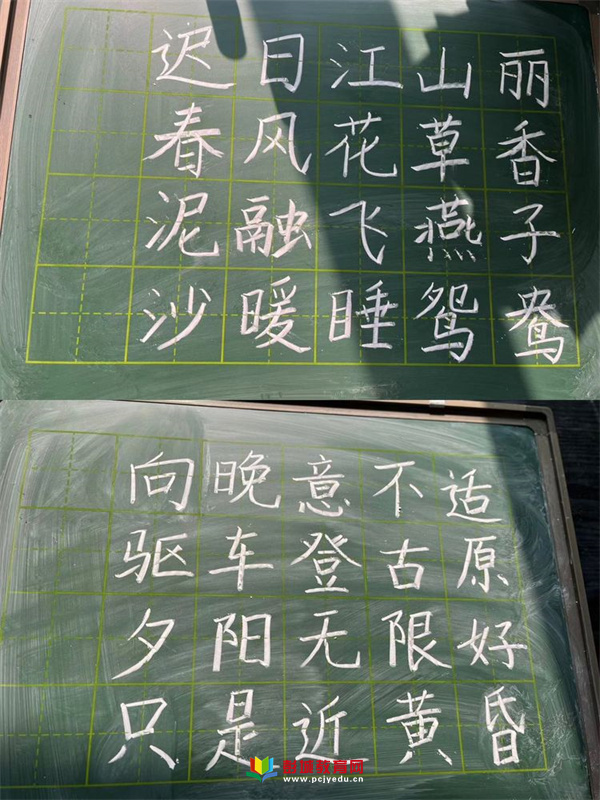 迟日江山丽
春风花草香
泥融飞燕子
沙暖睡鸳鸯
向晚意不适
驱车登古原
夕阳无限好
只是近黄昏
教育网
www.pcjyedu.cn